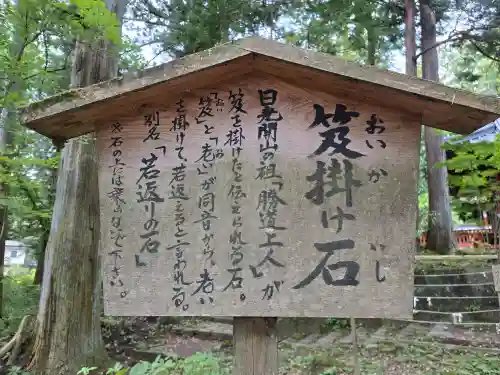 おいかけいし
笈掛け石
日光開山の祖「勝道上人」が
笈を掛けたと伝えられる石。
「笈」と「老い」が同音から、老い
を掛けて、若返ると言われる。
別名「若返りの石」
※石の上にはお乗りにならないで下さい。